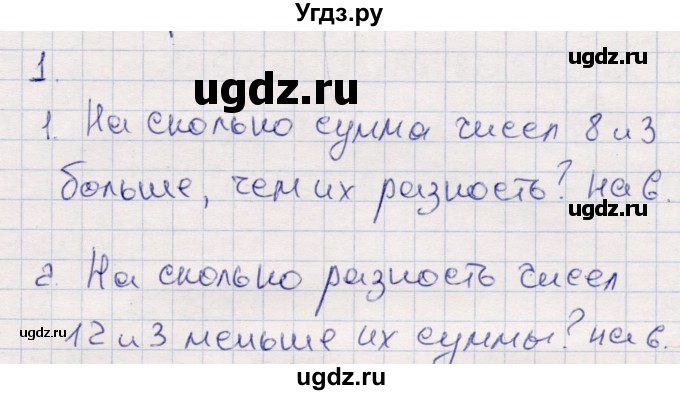 Угдз.ру
ugdz.ru
1.
ugdz.ru
1. На сколько сумма чисел 8 и 3
больше, чем их разность? На 6.
ugdz.ru
ugdz.ru
2. На сколько разность чисел
12 и 3 меньше их суммы? на 6.
ugdz.ru
ugdz.ru
ugdz.ru
ugdz.ru